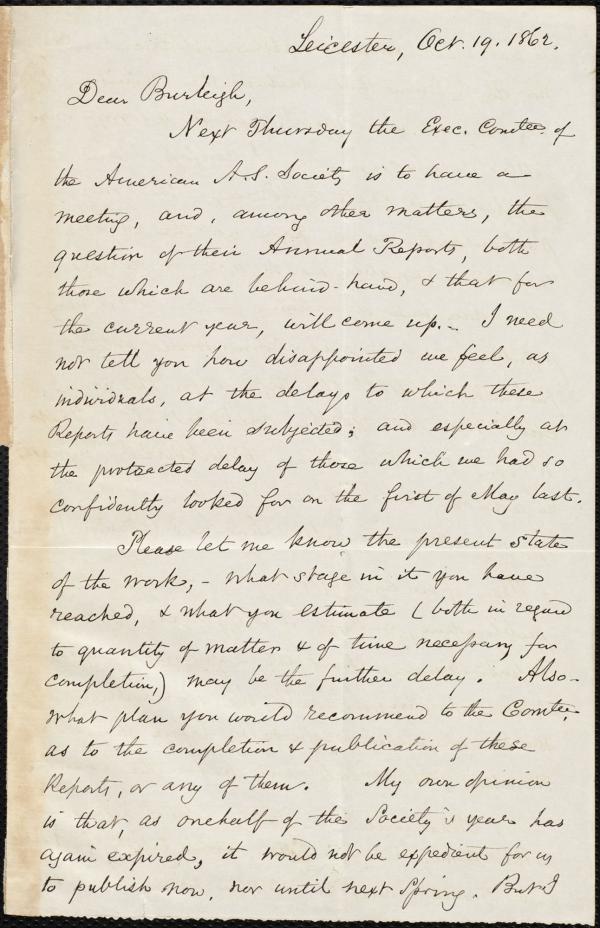 Leicester, Oct. 19. 1862.
Dear Burleigh,
Next Thursday the Exec. Comtee. of
the American A.S. Society is to have a
meeting, and, among other matters, the
question of their Annual Reports, both
those which are behind-hand, & that for
the current year, will come up. – I need
not tell you how disappointed we feel, as
individuals, at the delays to which these
Reports have been subjected; and especially at
the protracted delay of those which we had so
confidently looked for on the first of May last.
Please let me know the present state
of the work, – what stage in it you have
reached, & what you estimate (both in regard
to quantity of matter & of time necessary for
completion,) may be the further delay. Also –
what plan you would recommend to the Comtee.
as to the completion & publication of these
Reports, or any of them. My own opinion
is that, as onehalf of the Society's year has
again expired, it would not be expedient for us
to publish now, nor until next Spring. But I